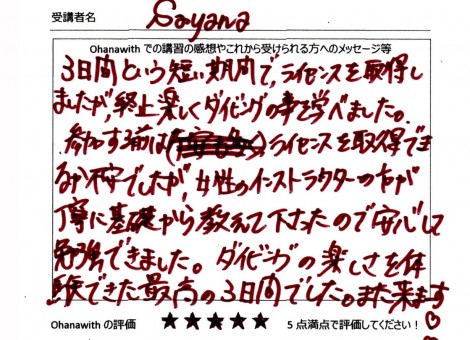 受講者名 Sayana
Ohanawith での講習の感想やこれから受けられる方へのメッセージ等
3日間という短い期間で、ライセンスを取得し
ましたが、終止楽しくダイビングの事を学べました。
参加する前は ライセンスを取得でき
るか不安でしたが、女性のインストラクターの方が
丁寧に基礎から教えて下さったので安心して
勉強できました。ダイビングの楽しさを体
験できた最高の3日間でした。また来ます♡
Ohanawith の評価 ★★★★★ 5点満点で評価してください！♡